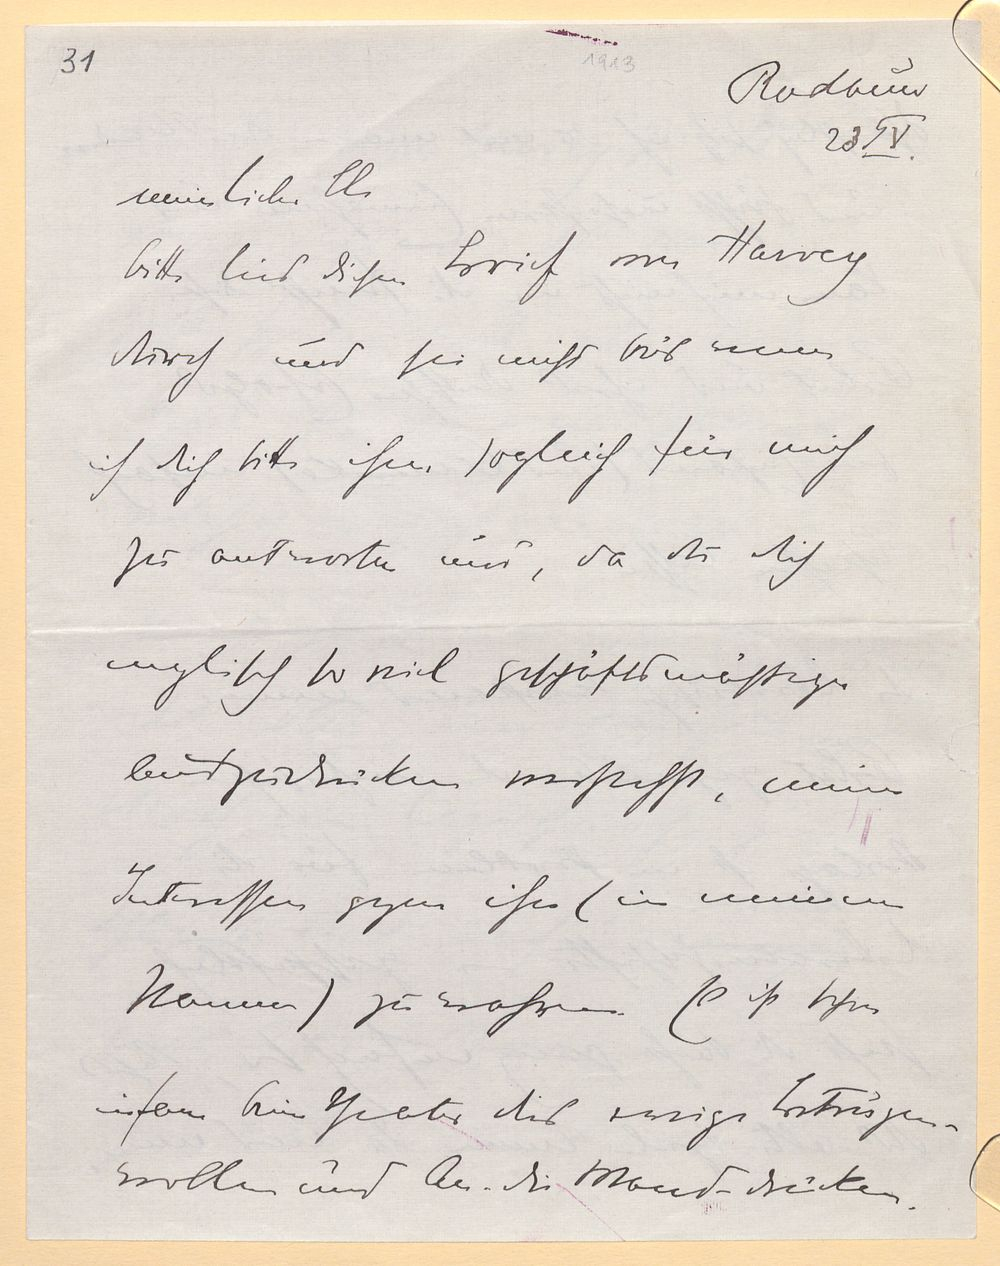 31
1913
Rodaun
23 IV.
mein lieber
bitte lies diesen Brief von Harvey
durch und sei nicht bös wenn
ich dich bitte ihm sogleich für mich
zu antworten und, da du dich
englisch so viel geschäftsmässiger
auszudrücken verstehst, meine
Interessen gegen ihn (in meinem
Namen) zu wahren. Es ist schon
infam beim Theater dies ewige Betrügen-
wollen und An-die Wand-drücken.